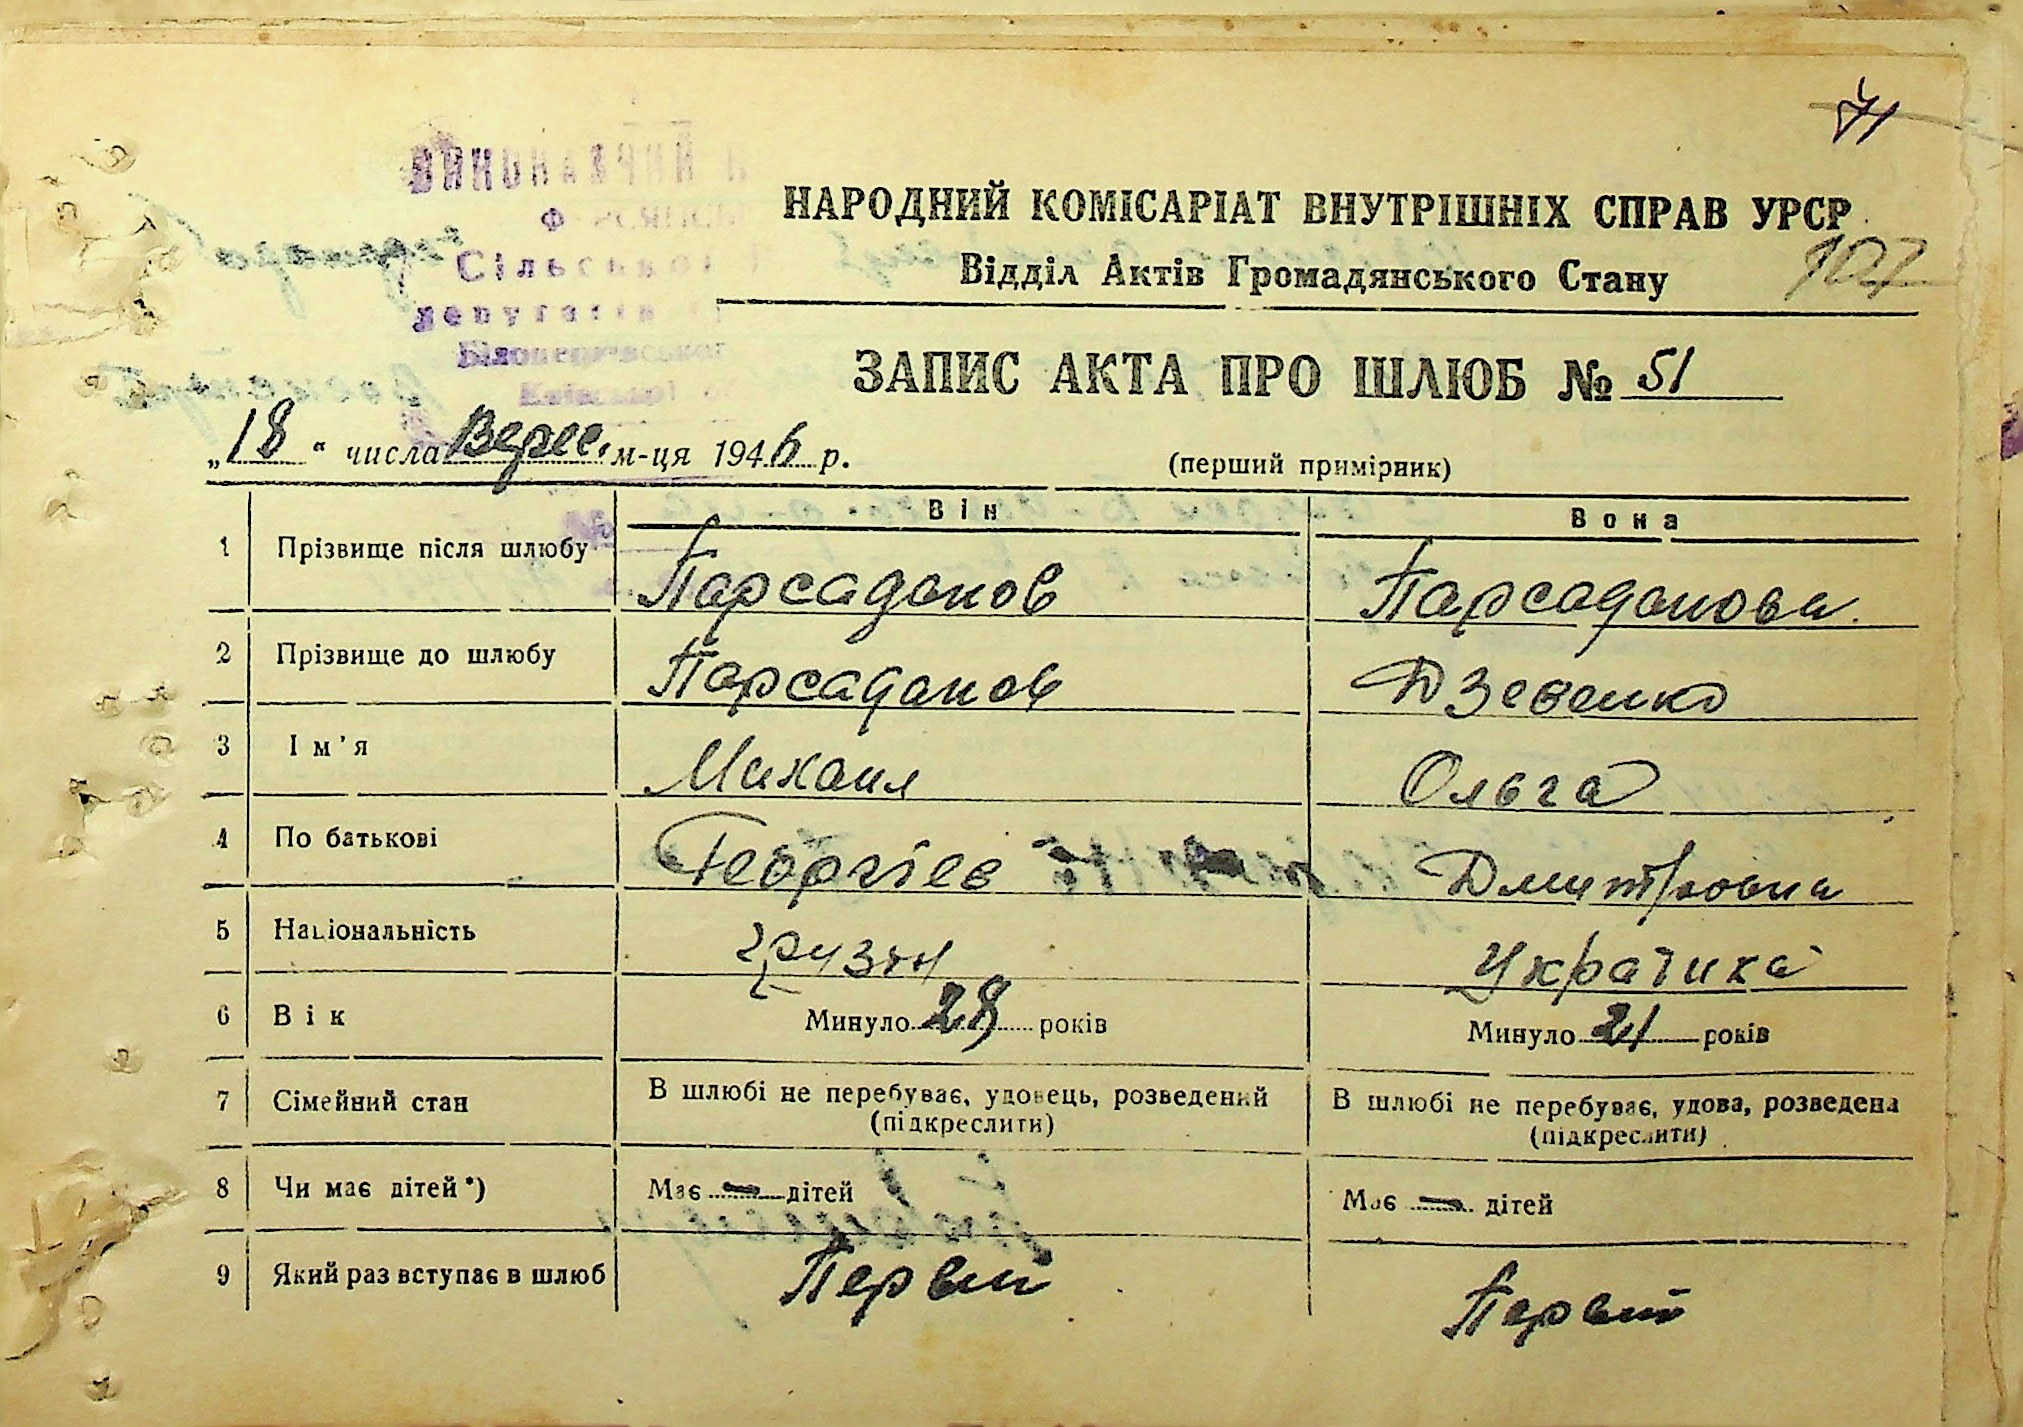 71
ВИКОНАВЧИЙ
Сільської
депутатів
Білоцерківської
Київської
НАРОДНИЙ КОМІСАРІАТ ВНУТРІШНІХ СПРАВ УРСР
Відділ Актів Громадянського Стану 107
ЗАПИС АКТА ПРО ШЛЮБ № 51
„18“ числа Верес. м-ця 1946 р.
(перший примірник)
Він Вона
1 Прізвище після шлюбу Парсаданов Парсаданова
2 Прізвище до шлюбу Парсаданов Дзевенко
3 Ім’я Михаил Ольга
4 По батькові Георгіев Дмитровна
5 Національність грузин Украінка
6 Вік Минуло 28 років Минуло 21 років
7 Сімейний стан В шлюбі не перебуває, удовець, розведений В шлюбі не перебуває, удова, розведена
(підкреслити) (підкреслити)
8 Чи має дітей*) Має — дітей Має — дітей
9 Який раз вступає в шлюб Первий Первий